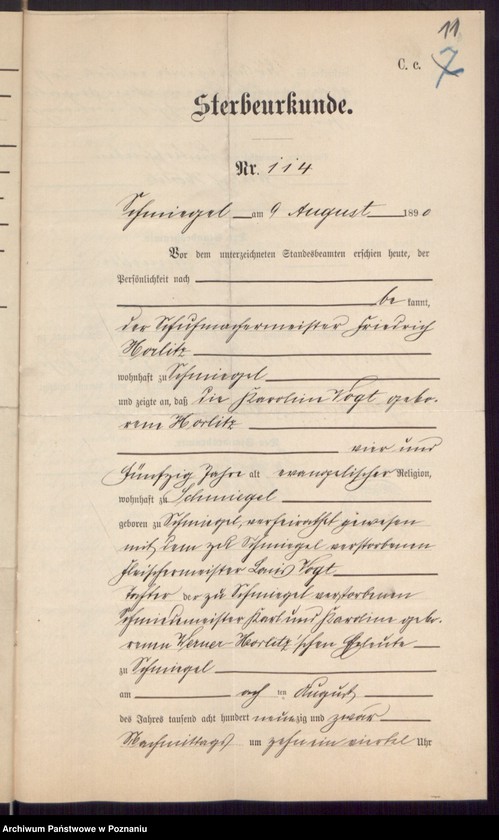 11
7
C. c.
Sterbeurkunde.
Nr. 114
Schmiegel am 9 August 1890
Vor dem unterzeichneten Standesbeamten erschien heute, der
Persönlichkeit nach
be kannt,
der Schuhmachermeister Friedrich
Horlitz
wohnhaft zu Schmiegel
und zeigte an, daß die Karoline Vogt gebo-
rene Horlitz
vier und
fünfzig Jahre alt evangelischer Religion,
wohnhaft zu Schmiegel
geboren zu Schmiegel, verheirathet gewesen
mit dem zu Schmiegel verstorbenen
Fleischermeister Louis Vogt
Tochter der zu Schmiegel verstorbenen
Schmiedemeister Karl und Karoline gebo-
renen Werner Horlitz'schen Eheleute
zu Schmiegel
am acht en August
des Jahres tausend acht hundert neunzig und zwar
Nachmittags um zehn ein viertel Uhr
Archiwum Państwowe w Poznaniu